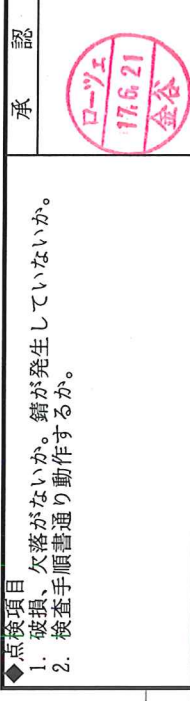 ◆点検項目
1. 破損、欠落がないか。錆が発生していないか。
2. 検査手順書通り動作するか。
承認
ローツェ
17.6.21
金谷